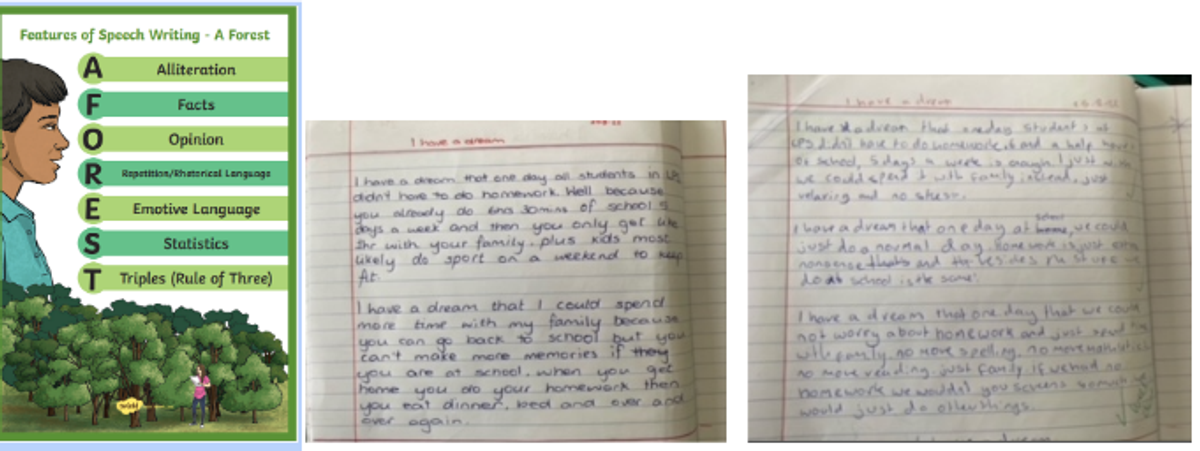 Features of Speech Writing - A Forest
A Alliteration
F Facts
O Opinion
R Repetition/Rhetorical Language
E Emotive Language
S Statistics
T Triples (Rule of Three)
twinkl
I have a dream
I have a dream that one day all students in
didn't have to do homework. Well because
you already do 6hs 30mins of school 5
days a week and then you only get like
5hr with your family. plus kids most
likely do sport on a weekend to keep
fit.
I have a dream that I could spend
more time with my family because
you can go back to school but you
can't make more memories if they
you are at school. when you get
home you do your homework then
you eat dinner, bed and over and
over again.
I have a dream
I have a dream that oneday students at
didn't have to do homework, 6 and a half hours
of school, 5 days a week is enough. I just
we could spend it with family instead, just
relaxing and no stress.
I have a dream that one day at home, school we could
just do a normal day. homework is just extra
nonsense and besides
do at school is the same.
I have a dream that one day that we could
not worry about homework and just
with family. no more spelling, no more
no more reading. just family if we had no
homework we wouldn't you screens
would just do other things.
I have a dream